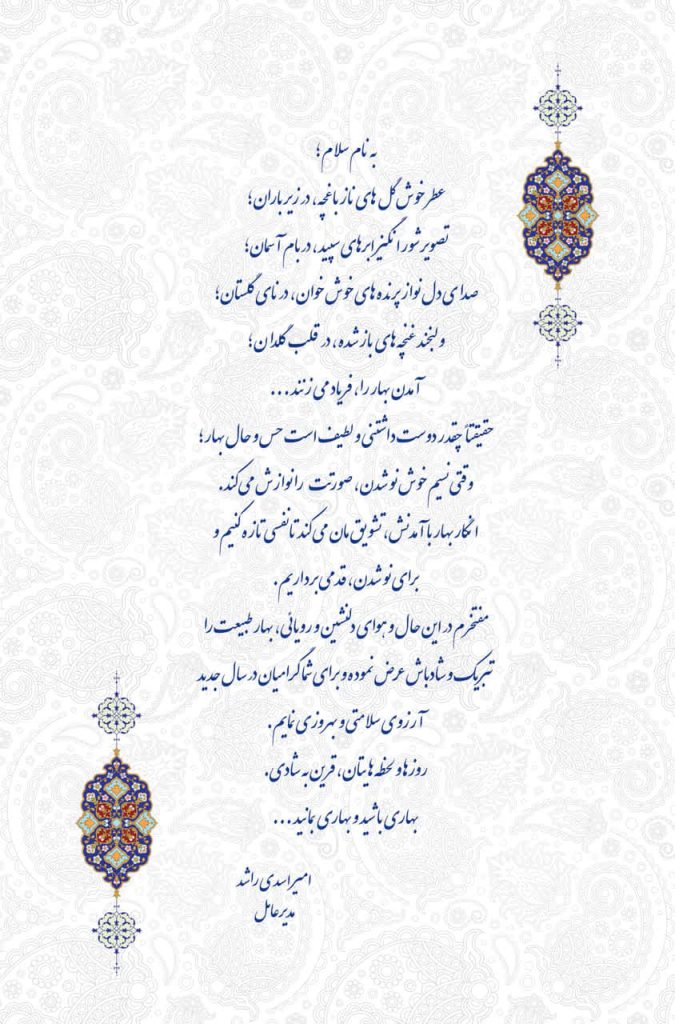 به نام سلام؛
عطر خوش گل های ناز باغچه، در زیر باران؛
تصویر شورانگیز ابرهای سپید، در بام آسمان؛
صدای دل نواز پرنده های خوش خوان، در نای گلستان؛
و لبخند غنچه های باز شده، در قلب گلدان؛
آمدن بهار را، فریاد می زنند...
حقیقتاً چقدر دوست داشتنی و لطیف است حس و حال بهار؛
وقتی نسیم خوش نو شدن، صورتت را نوازش می کند.
انگار بهار با آمدنش، تشویق مان می کند تا نفسی تازه کنیم و
برای نو شدن، قدمی برداریم.
مفتخرم در این حال و هوای دلنشین و رویائی، بهار طبیعت را
تبریک و شادباش عرض نموده و برای شما گرامیان در سال جدید
آرزوی سلامتی و بهروزی نمایم.
روزها و لحظه هایتان، قرین به شادی.
بهاری باشید و بهاری بمانید...
امیر اسدی راشد
مدیرعامل